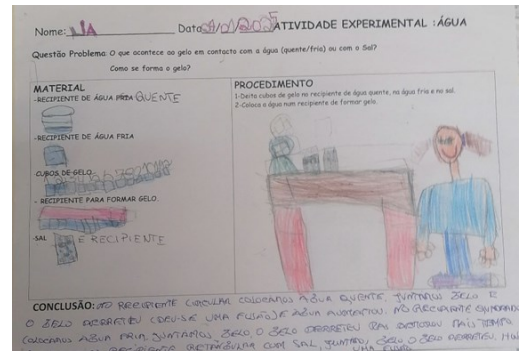 Nome: LIA Data 9/01/2025 ATIVIDADE EXPERIMENTAL :ÁGUA
Questão Problema: O que acontece ao gelo em contacto com a água (quente/fria) ou com o Sal?
Como se forma o gelo?
MATERIAL
-RECIPIENTE DE ÁGUA FRIA QUENTE
-RECIPIENTE DE ÁGUA FRIA
-CUBOS DE GELO
- RECIPIENTE PARA FORMAR GELO.
-SAL E RECIPIENTE
PROCEDIMENTO
1-Deita cubos de gelo no recipiente de água quente, na água fria e no sal.
2-Coloca a água num recipiente de formar gelo.
CONCLUSÃO: NO RECIPIENTE CIRCULAR COLOCAMOS ÁGUA QUENTE, JUNTAMOS GELO E
O GELO DERRETEU (DEU-SE UMA FUSÃO) E ÁGUA AUMENTOU. NO RECIPIENTE QUADRADO
COLOCAMOS ÁGUA FRIA, JUNTAMOS GELO O GELO DERRETEU MAS DEMOROU MAIS TEMPO.
RECIPIENTE RETANGULAR COM SAL, JUNTAMOS GELO O GELO DERRETEU,
UMA